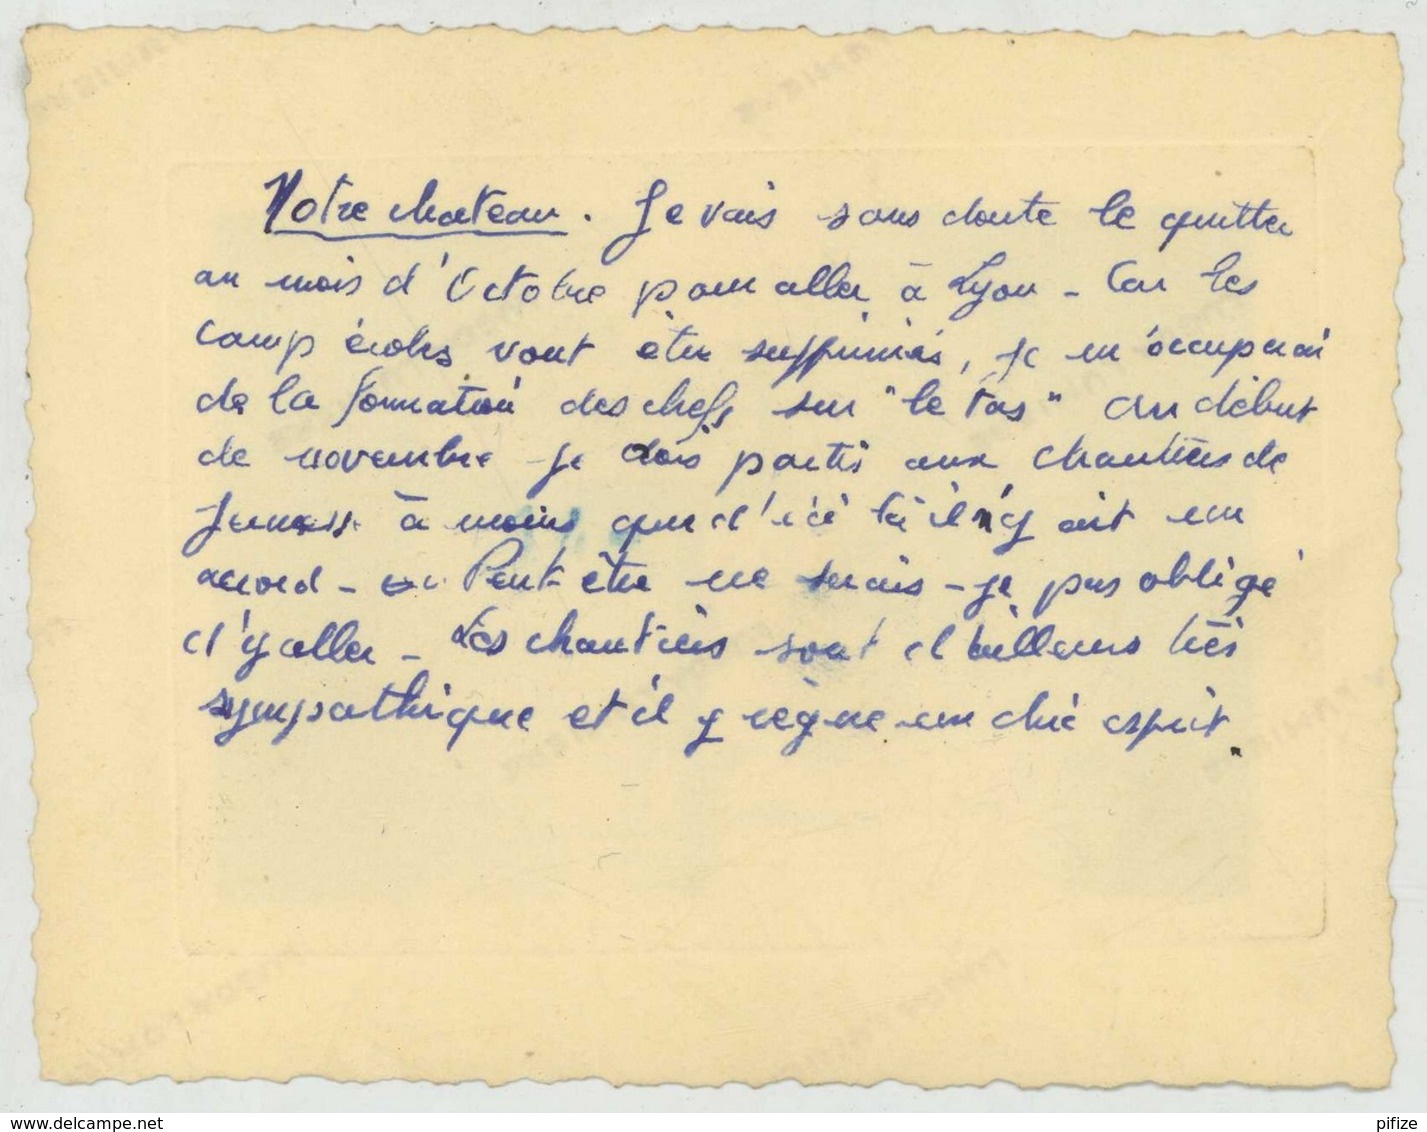 Notre chateau. Je vais sans doute le quitter
au mois d'Octobre pour aller à Lyon - Car les
camp écoles vont être supprimés, je m'occuperai
de la formation des chefs sur "le tas" Au début
de novembre je dois partir aux chantiers de
jeunesse à moins que d'ici là il n'y ait un
accord - Peut-être ne serais-je pas obligé
d'y aller - Les chantiers sont d'ailleurs très
sympathique et il y règne un chic esprit.
www.delcampe.net
pifize